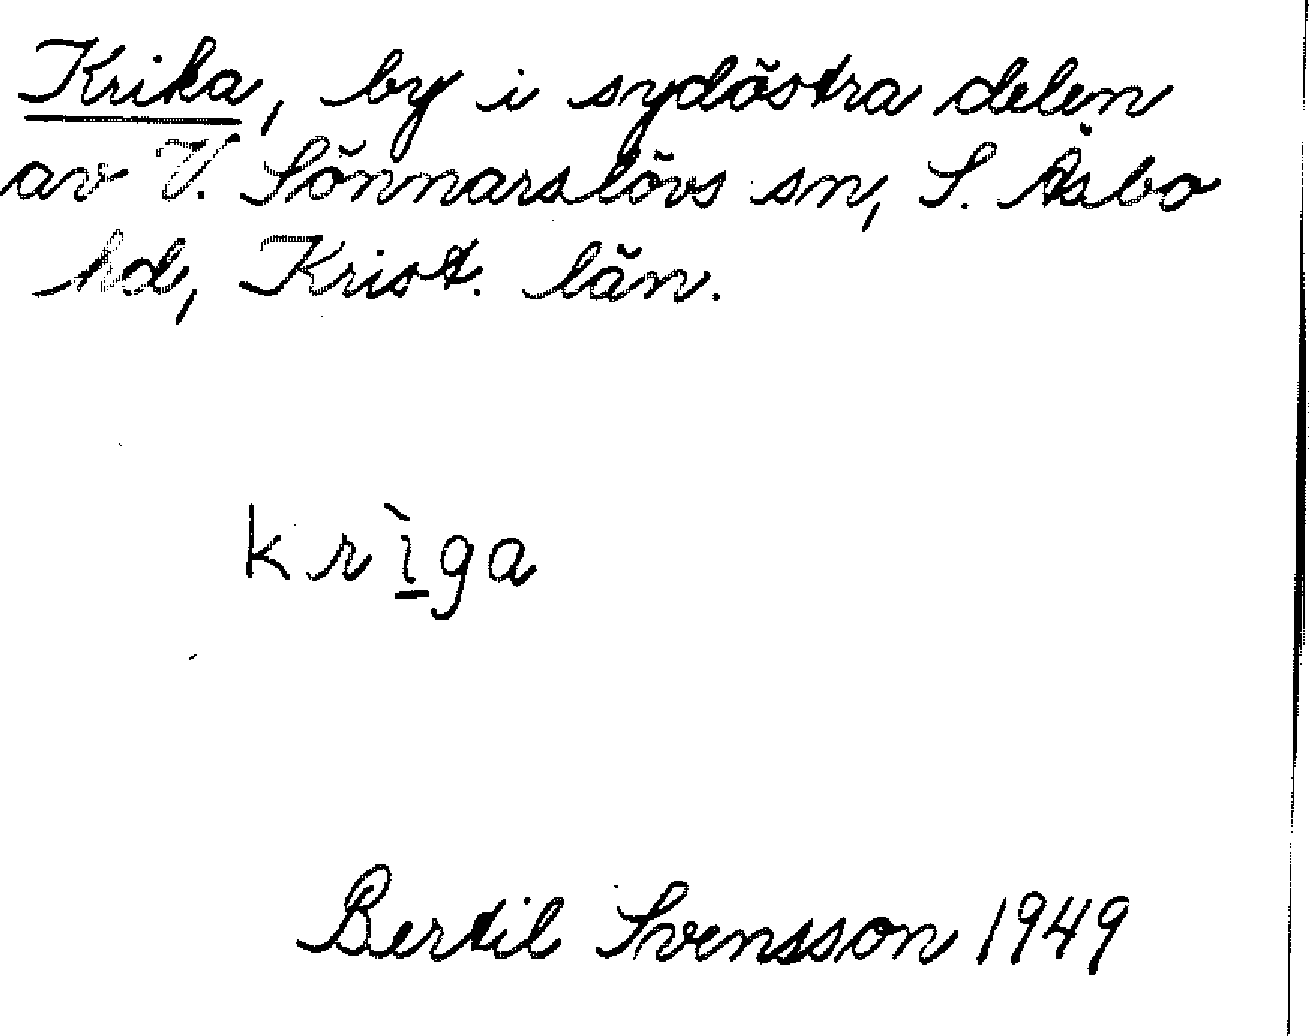 Krika, by i sydöstra delen
av V. Sönnarslövs sn, S. Åsbo
hd, Krist. län.
krìga
Bertil Svensson 1949